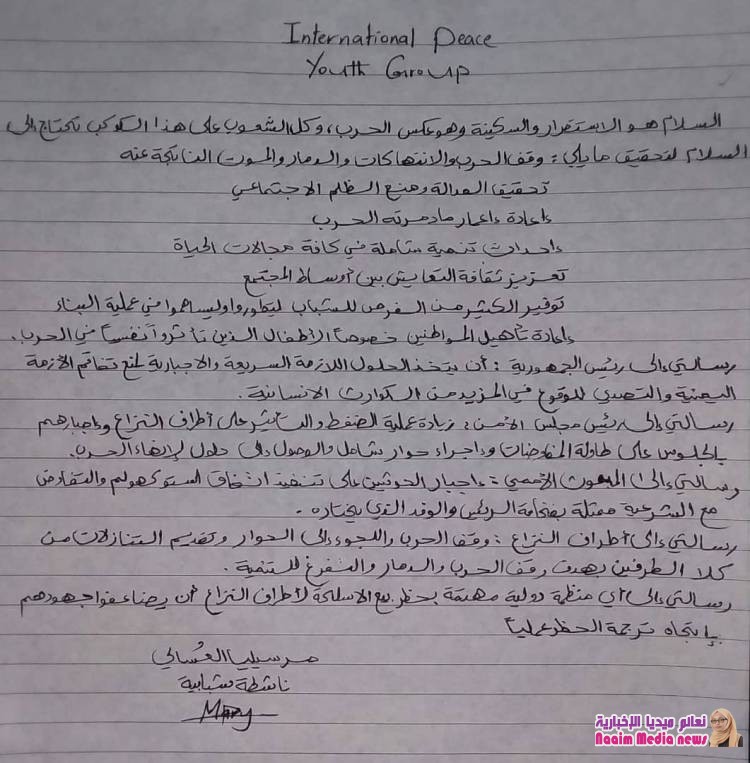 International Peace
Youth Group
السلام هو الاستقرار والسكينة وهو عكس الحرب، وكل الشعوب على هذا الكوكب تحتاج إلى
السلام لتحقيق ما يلي: وقف الحرب والانتهاكات والدمار والموت الناتجة عنه
تحقيق العدالة ومنع الظلم الاجتماعي
إعادة إعمار ما دمرته الحرب
إحداث تنمية شاملة في كافة مجالات الحياة
تعزيز ثقافة التعايش بين أوساط المجتمع
توفير الكثير من الفرص للشباب ليتطوروا وليساهموا في عملية البناء
إعادة تأهيل المواطنين خصوصاً الأطفال الذين تأثروا نفسياً من الحرب.
رسالتي إلى رئيس الجمهورية: أن يتخذ الحلول اللازمة السريعة والاجبارية لمنع تفاقم الأزمة
اليمنية والتصدي للوقوع في المزيد من الكوارث الانسانية.
رسالتي إلى رئيس مجلس الأمن: زيادة عملية الضغط والتأثير على أطراف النزاع وإجبارهم
بالجلوس على طاولة المفاوضات وإجراء حوار شامل والوصول إلى حلول لإنهاء الحرب.
رسالتي إلى المبعوث الأممي: إجبار الحوثيين على تنفيذ اتفاق استوكهولم والتفاوض
مع الشرعية ممثلة بفخامة الرئيس والوفد الذي يختاره.
رسالتي إلى أطراف النزاع: وقف الحرب واللجوء إلى الحوار وتقديم التنازلات من
كلا الطرفين بهدف وقف الحرب والدمار والتفرغ للتنمية.
رسالتي إلى أي منظمة دولية مهتمة بحظر بيع الاسلحة لأطراف النزاع أن يضاعفوا جهودهم
بإتجاه ترجمة الحظر عملياً
مرسيليا العسالي
ناشطة شبابية
Mary
نعائم ميديا الإخبارية
Naaim Media news